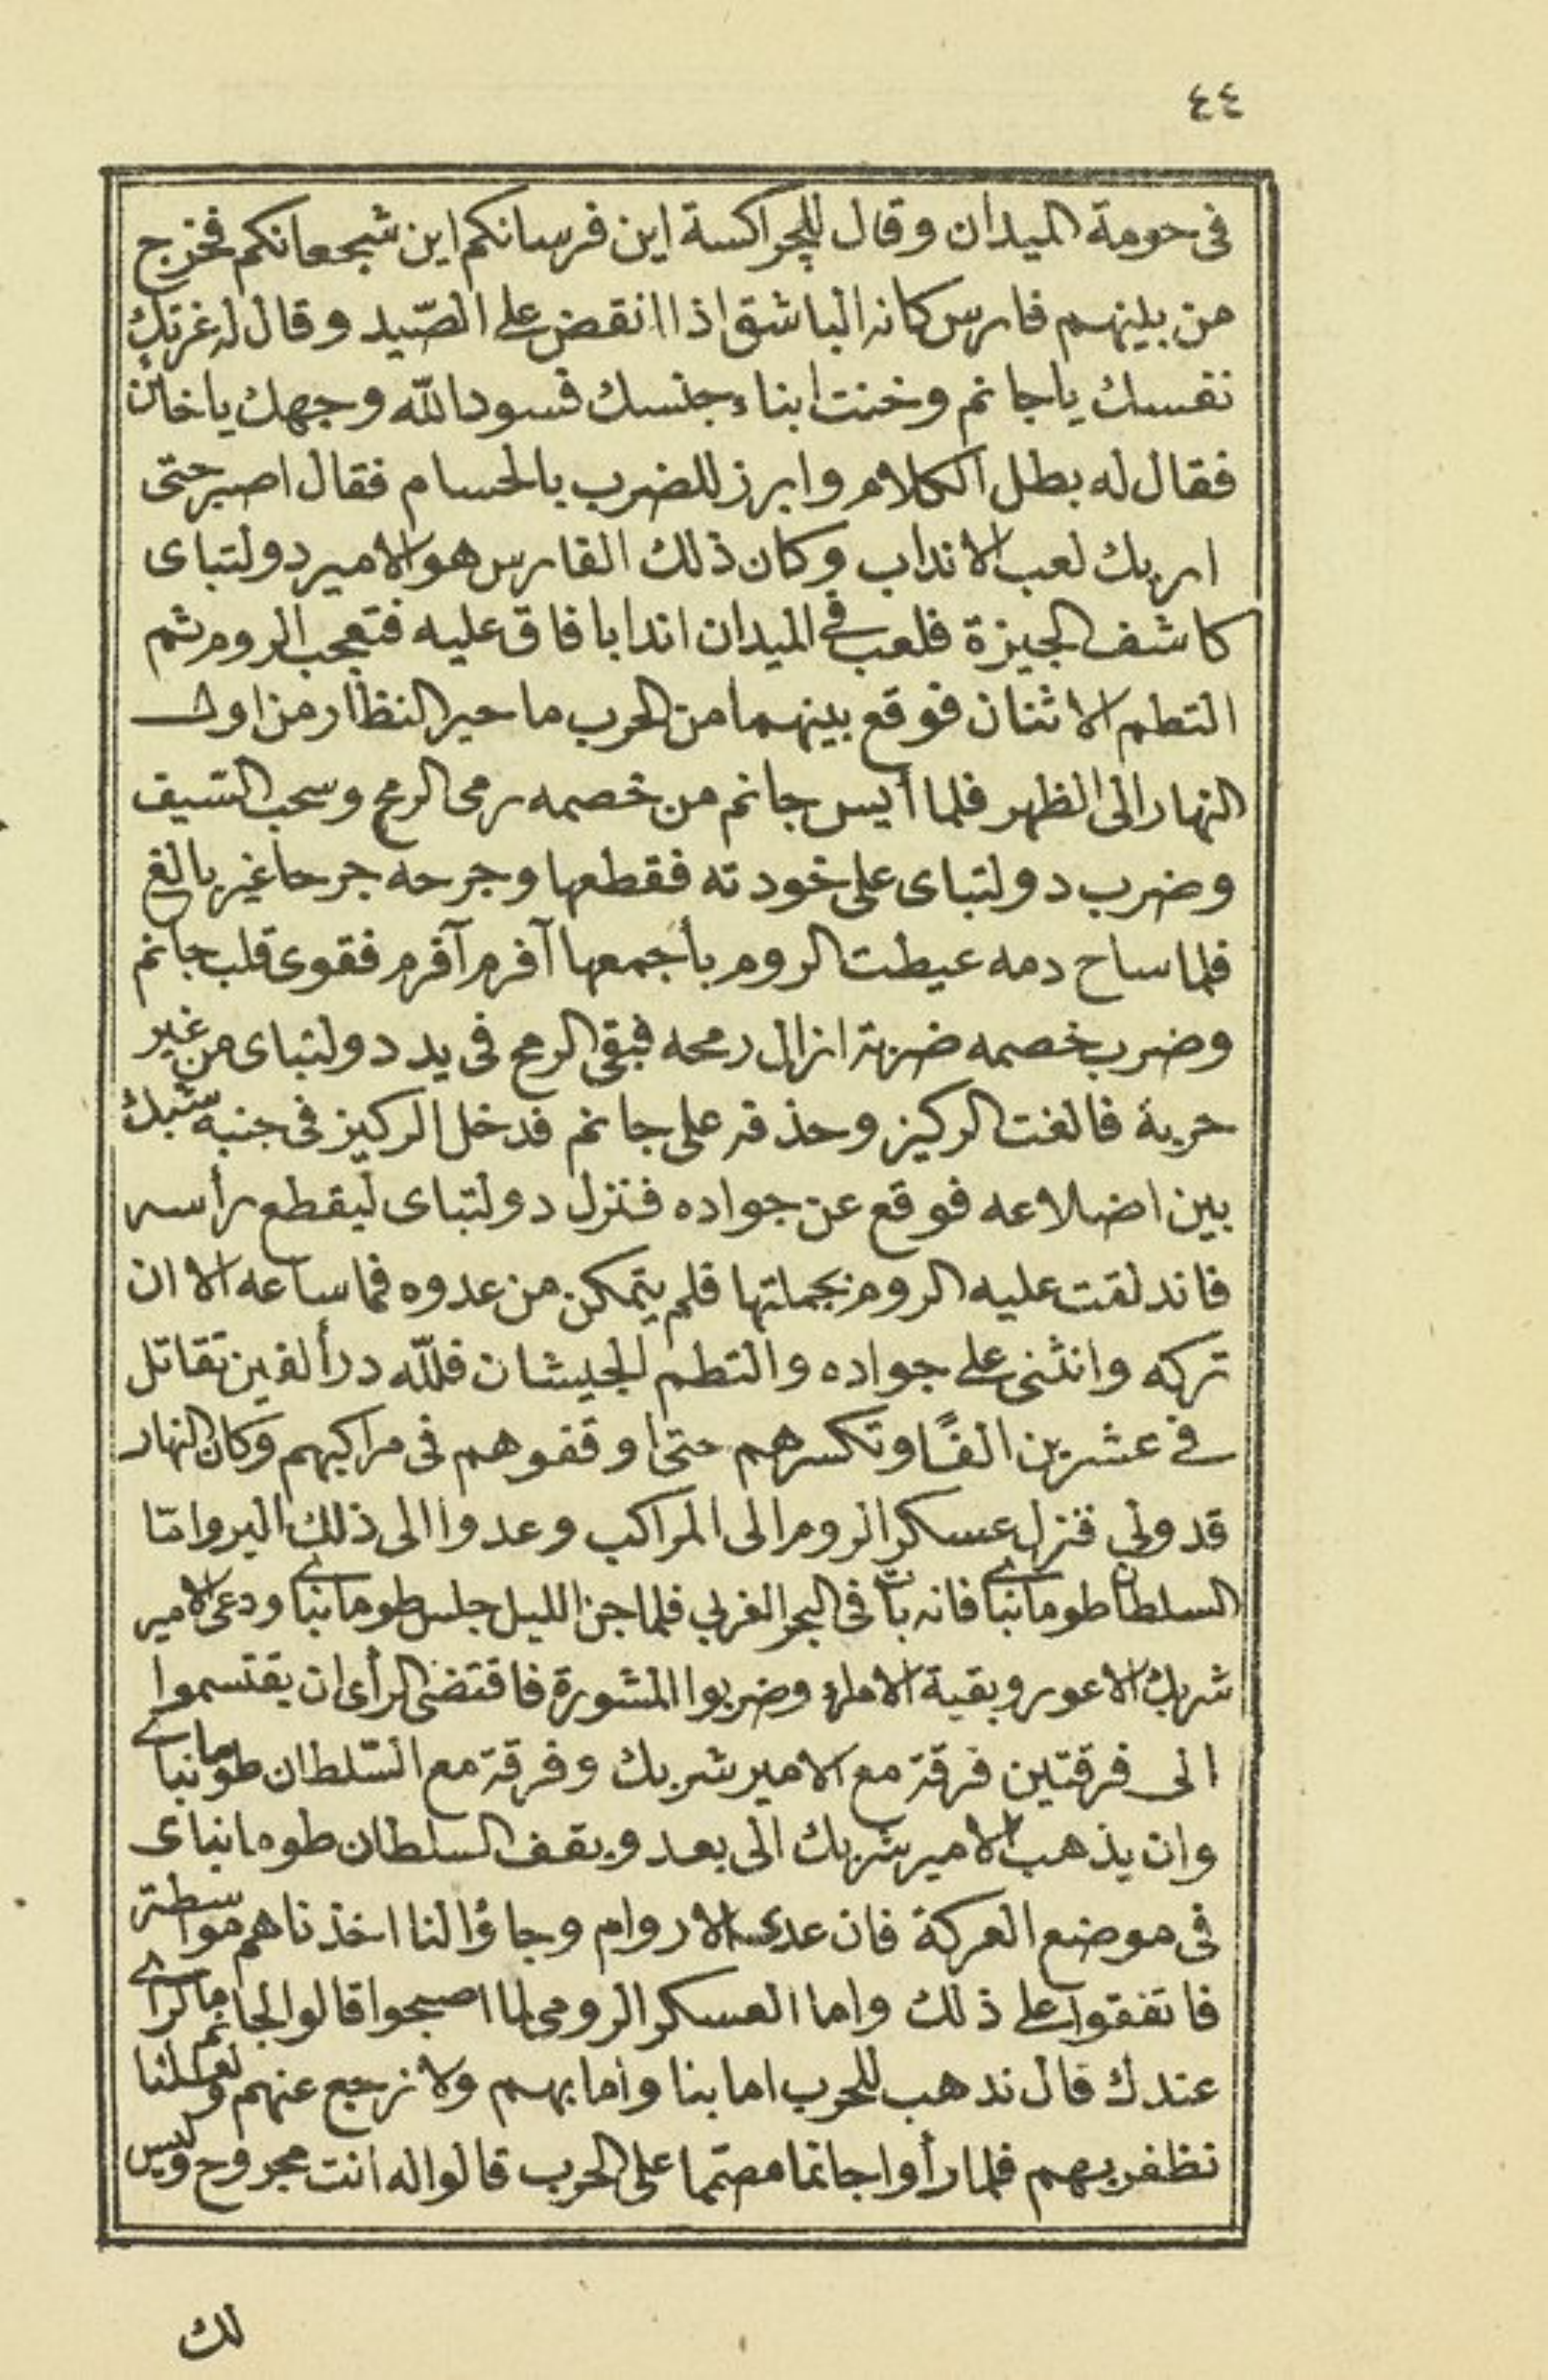 ٤٤
فى حومة الميدان وقال للجراكسة اين فرسانكم اين شجعانكم فخرج
من بينهم فارس كانه الباشق اذا انقض على الصّيد وقال له غرتك
نفسك يا جانم وخنت ابناء جنسك فسود الله وجهك يا خائن
فقال له بطل الكلام وابرز للضرب بالحسام فقال اصبر حتى
اريك لعب الانداب وكان ذلك الفارس هو الامير دولتباى
كاشف الجيزة فلعب فى الميدان اندابا فاق عليه فتعجب الروم ثم
التطم الاثنان فوقع بينهما من الحرب ما حير النظار من اول
النهار الى الظهر فلما أيس جانم من خصمه رمى الرمح وسحب السّيف
وضرب دولتباى على خودته فقطعها وجرحه جرحا غير بالغ
فلما ساح دمه عيطت الروم بأجمعها آفرم آفرم فقوى قلب جانم
وضرب خصمه ضربة ازال رمحه فبقى الرمح فى يد دولتباى من غير
حربة فالفت الركيز وحذفه على جانم فدخل الركيز فى جنبه شبك
بين اضلاعه فوقع عن جواده فنزل دولتباى ليقطع رأسه
فاندلقت عليه الروم بجملتها فلم يتمكن من عدوه فما ساعه الا ان
تركه وانثنى على جواده والتطم الجيشان فللّه در ألفين تقاتل
فى عشرين الفًا وتكسرهم حتى اوقفوهم فى مراكبهم وكان النهار
قد ولى فنزل عسكر الروم الى المراكب وعدوا الى ذلك البر وامّا
السلطان طومانباى فانه بات فى البحر الغربى فلما جن الليل جلس طومانباى ودعى الامير
شربك الاعور وبقية الامراء وضربوا المشورة فاقتضى الرأى ان يقتسموا
الى فرقتين فرقة مع الامير شربك وفرقة مع السّلطان طومانباى
وان يذهب الامير شربك الى بعد ويقف السلطان طومانباى
فى موضع العركة فان عدت الاروام وجاؤا لنا اخذناهم مواسطة
فاتفقوا على ذلك واما العسكر الرومى لما اصبحوا قالوا لجانم ما الراى
عندك قال نذهب للحرب اما بنا واما بهم ولا نرجع عنهم ولعلنا
نظفر بهم فلما رأوا جانما مصمّما على الحرب قالوا له انت مجروح وليس
لك